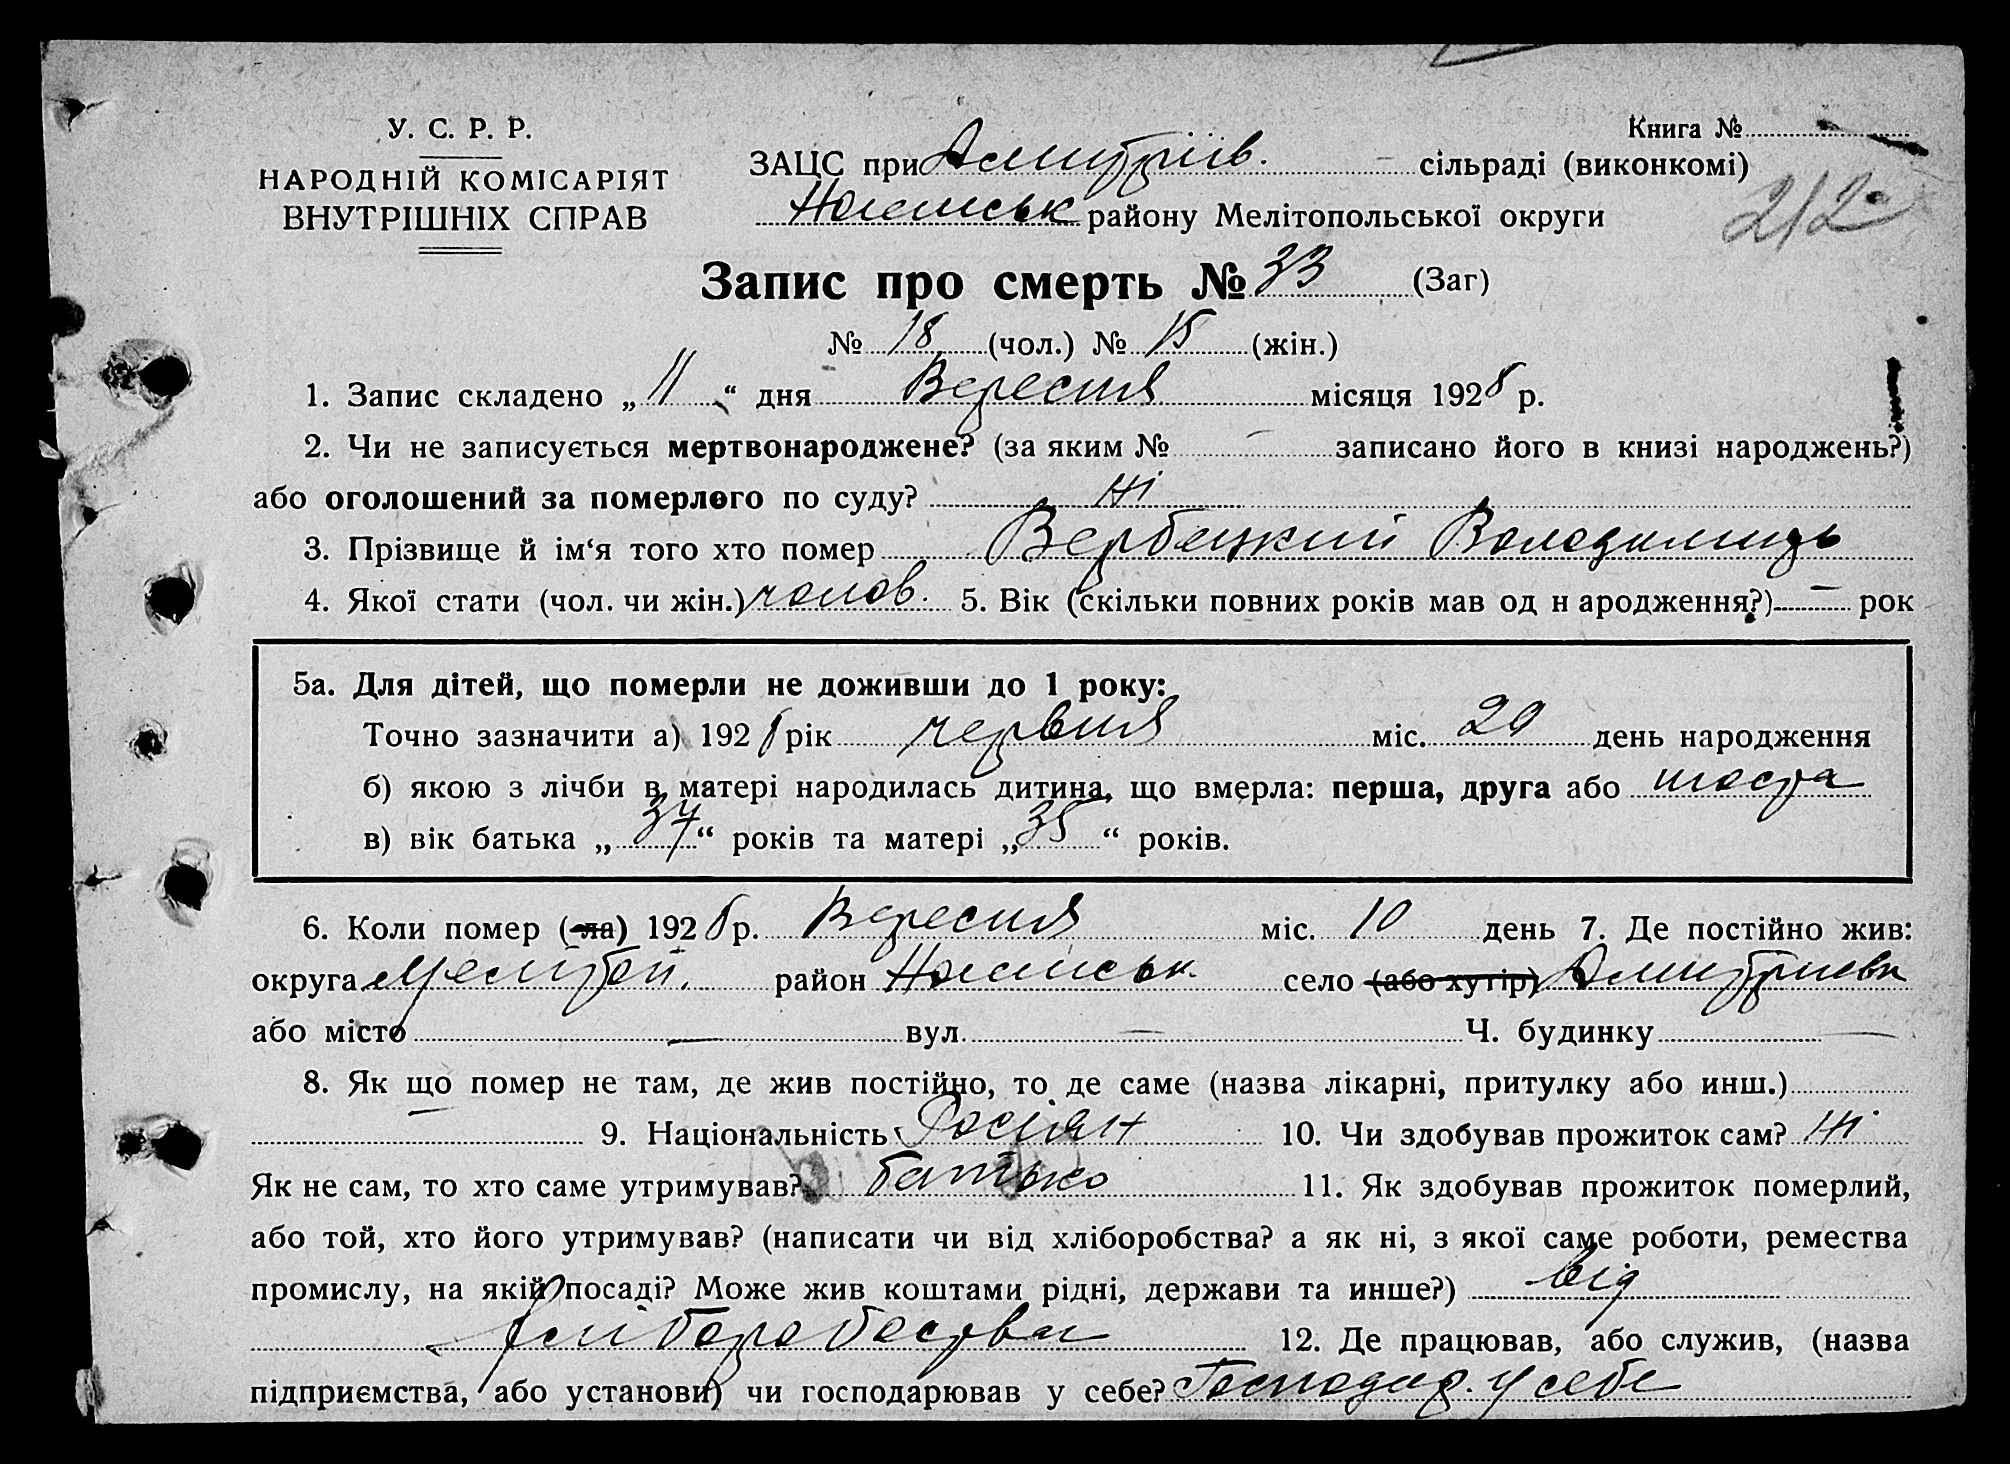 У. С. Р. Р.
НАРОДНІЙ КОМІСАРІЯТ
ВНУТРІШНІХ СПРАВ
Книга №
ЗАЦС при Дмитріїв. сільраді (виконкомі)
212
району Мелітопольської округи
Запис про смерть № 33 (Заг)
№ 18 (чол.) № 15 (жін.)
1. Запис складено „ 11 “ дня Вересня місяця 1928 р.
2. Чи не записується мертвонароджене? (за яким № — записано його в книзі народжень?)
або оголошений за померлого по суду? Ні
3. Прізвище й ім‘я того хто помер Вербецкий Володимир
4. Якої стати (чол. чи жін.) чолов. 5. Вік (скільки повних років мав од н ародження?) — рок
5а. Для дітей, що померли не доживши до 1 року:
Точно зазначити а) 1928 рік червня міс. 20 день народження
б) якою з лічби в матері народилась дитина, що вмерла: перша, друга або шоста
в) вік батька „ 37 “ років та матері „ 35 “ років.
6. Коли помер (-ла) 1928 р. Вересня міс. 10 день 7. Де постійно жив:
округа Мелітоп. район село (або хутір) Дмитриевк
або місто — вул. — Ч. будинку —
8. Як що помер не там, де жив постійно, то де саме (назва лікарні, притулку або инш.)
— 9. Національність Росіян 10. Чи здобував прожиток сам? Ні
Як не сам, то хто саме утримував? батько 11. Як здобував прожиток померлий,
або той, хто його утримував? (написати чи від хліборобства? а як ні, з якої саме роботи, ремества
промислу, на якій посаді? Може жив коштами рідні, держави та инше?) від
хліборобства 12. Де працював, або служив, (назва
підприємства, або установи) чи господарював у себе? Господар. у себе